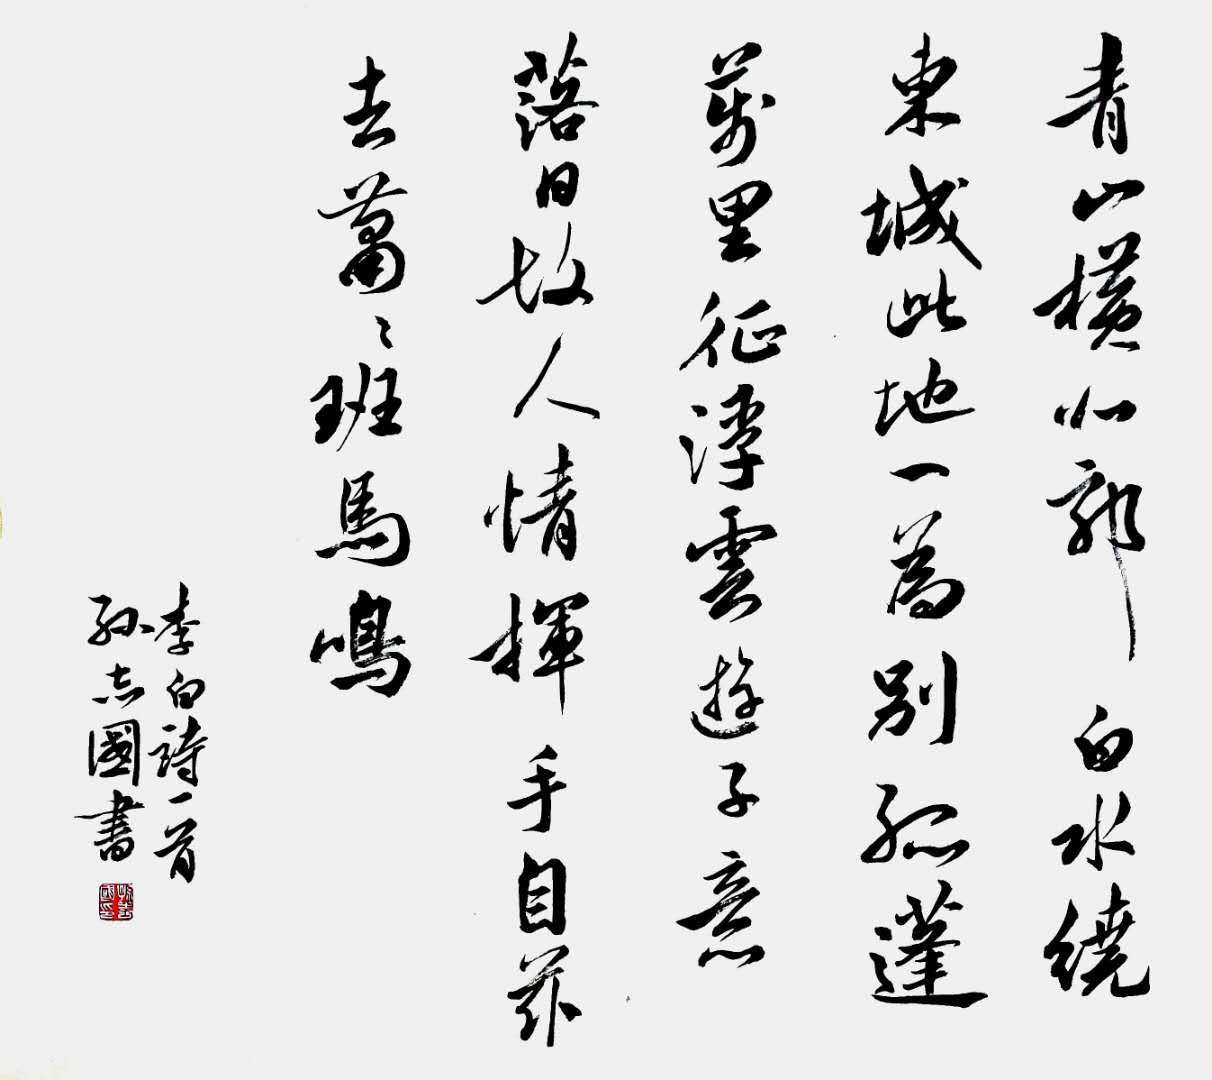 青山橫北郭白水繞
東城此地一為別孤蓬
萬里征浮雲遊子意
落日故人情揮手自茲
去蕭々班馬鳴
李白詩一首
孫志國書